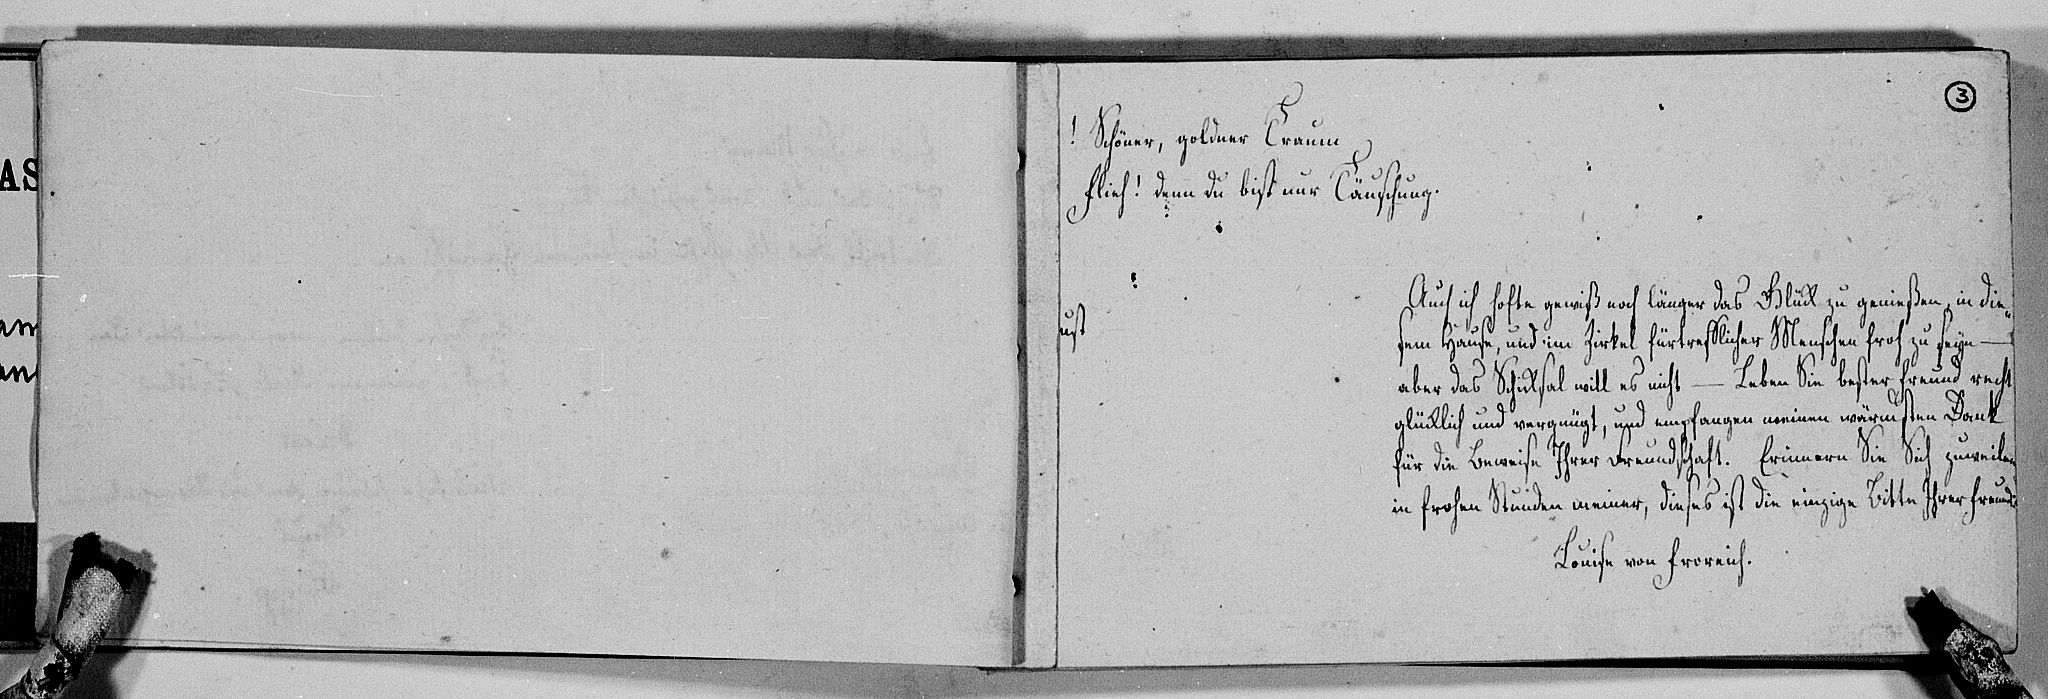 AS
am
an
3
! Schöner, goldner Traum
flieh! denn du bist nur Täuschung.
ust
Auch ich hofte gewiß noch länger das Glük zu genießen, in die-
sem Hause, und im Zirkel fürtrefflicher Menschen froh zu seyn —
aber das Schiksal will es nicht — Leben Sie bester Freund recht
glüklich und vergnügt, und empfangen meinen wärmsten Dank
für die Beweise Ihrer Freundschaft. Erinnern Sie Sich zuweilen
in frohen Stunden meiner, dieses ist die einzige Bitte Ihrer Freundi
Louise von Froreich.